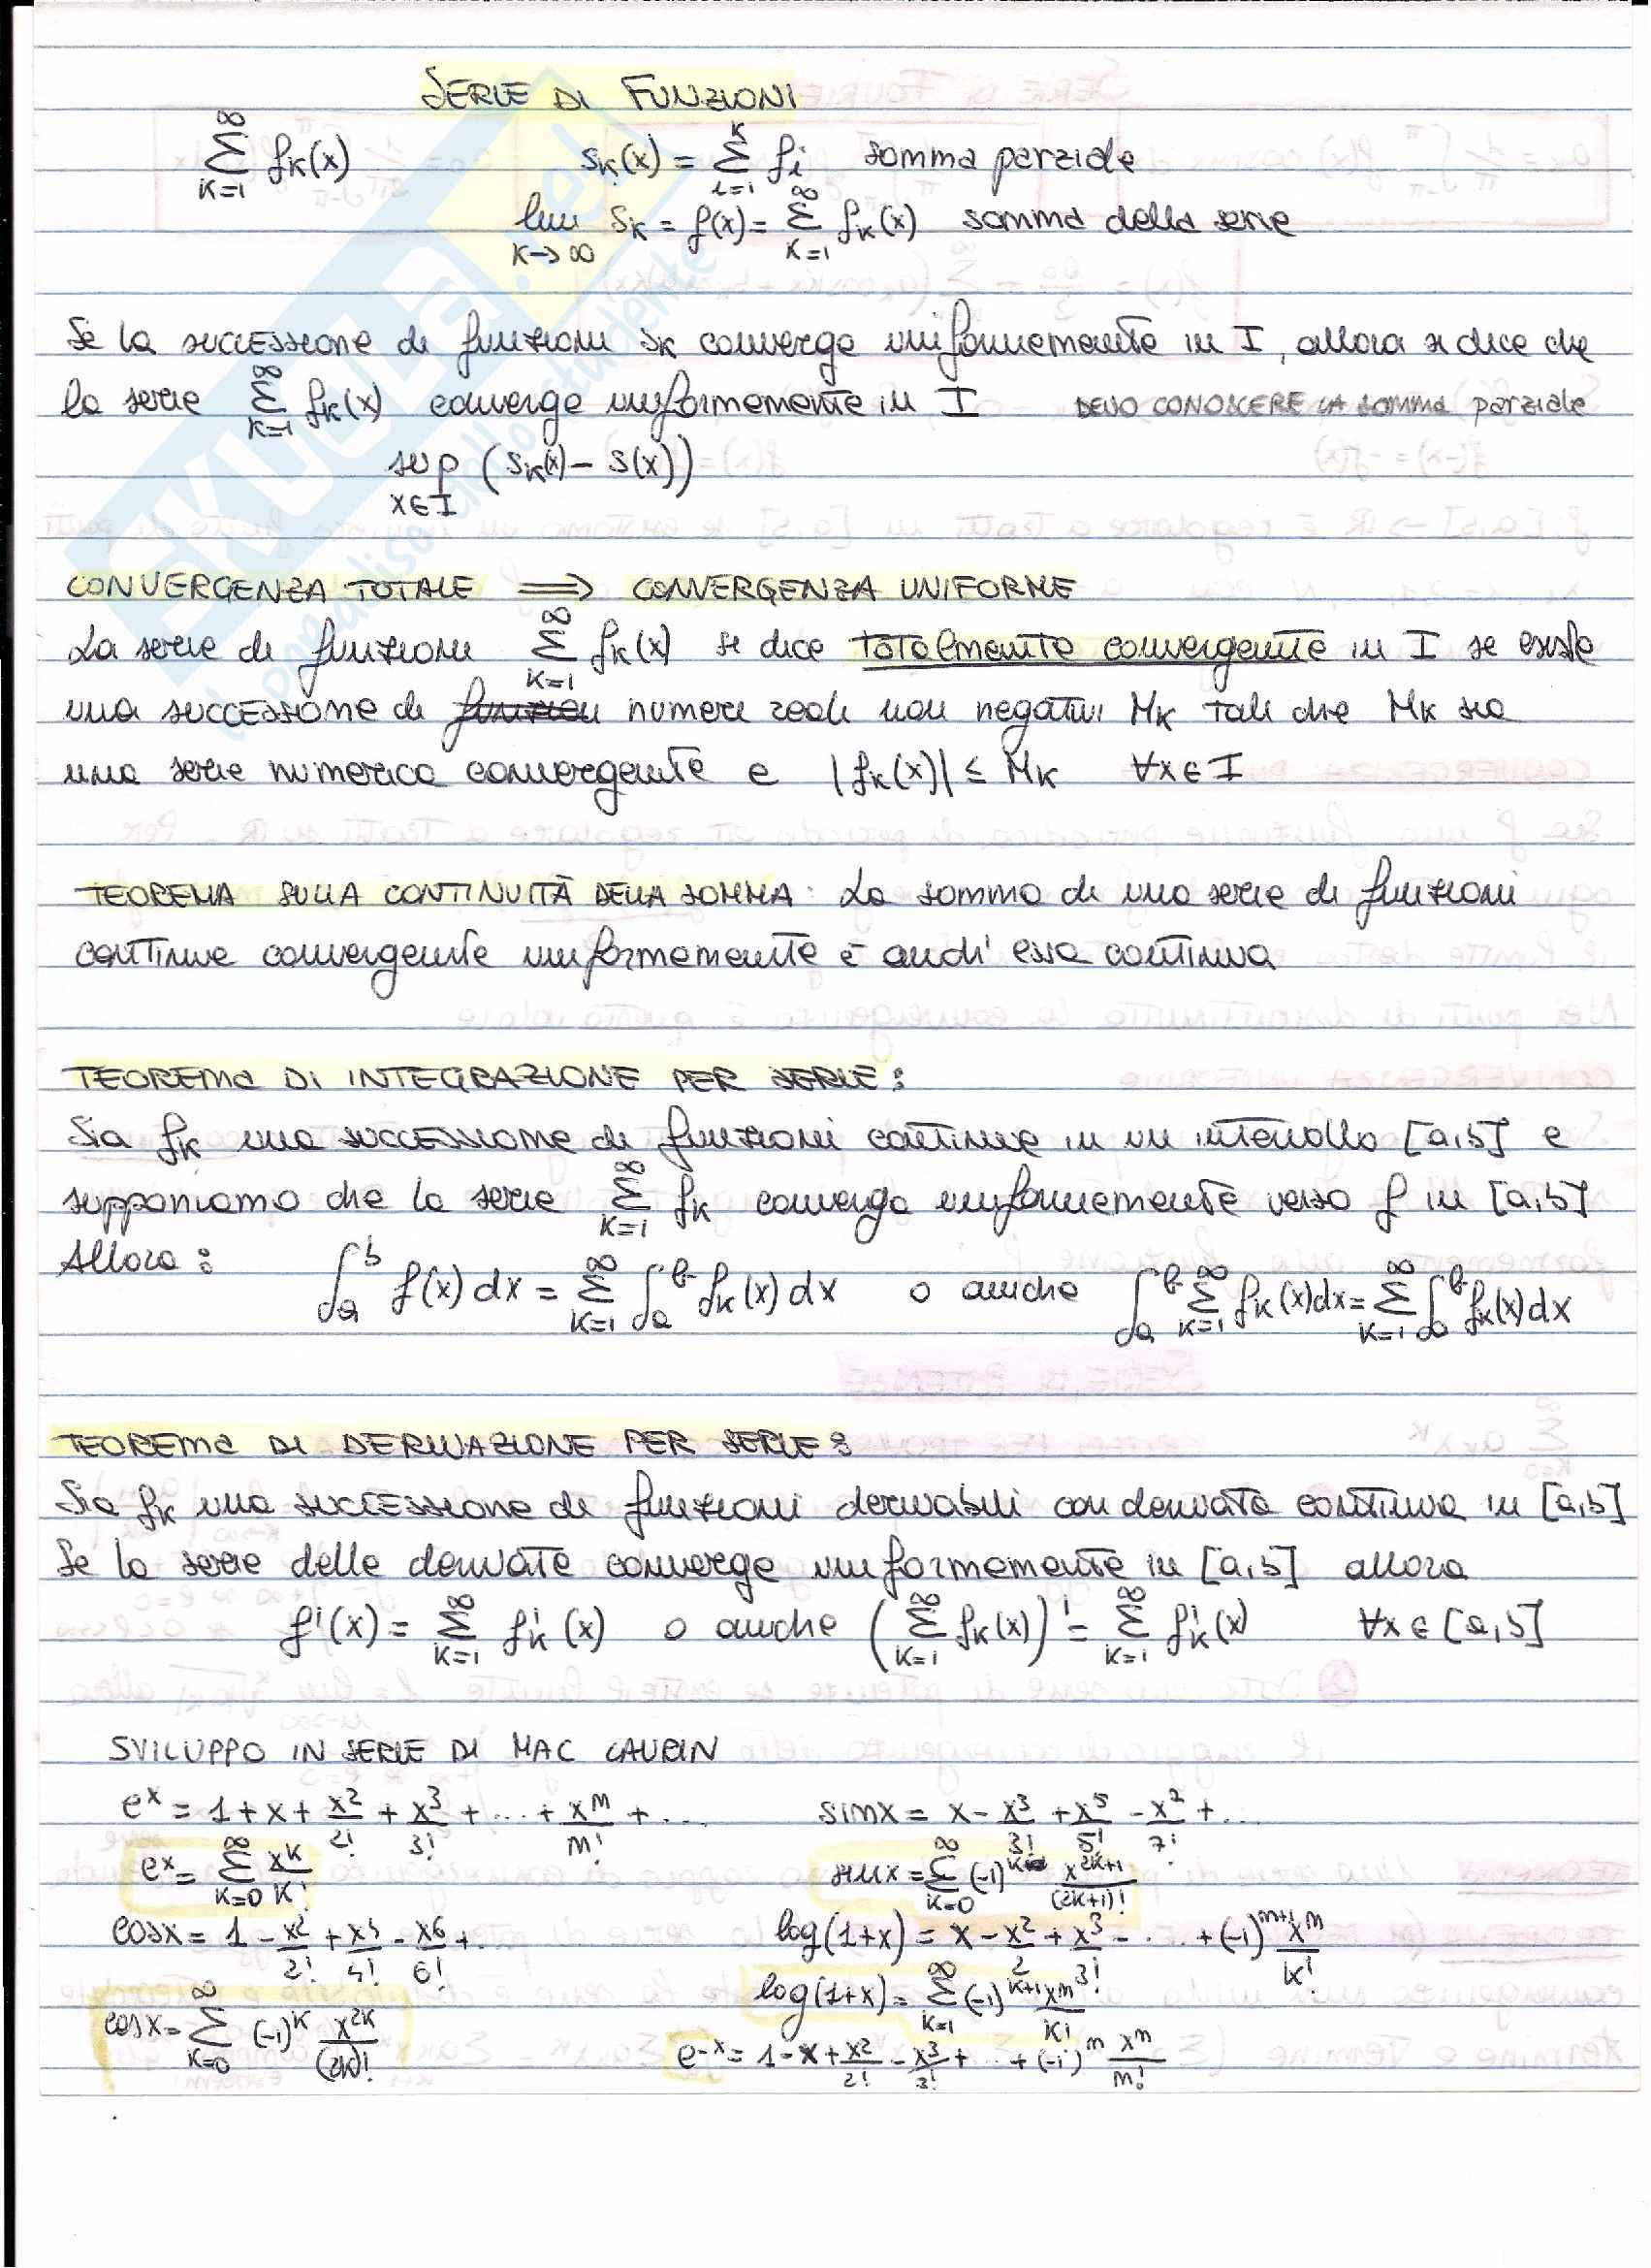 SERIE DI FUNZIONI
∞∑K=1 fK(x)    sK(x) = K∑i=1 fi   somma parziale
lim K→∞ SK = f(x) = ∞∑K=1 fK(x)   somma della serie
Se la successione di funzioni SK converge uniformemente in I, allora si dice che
la serie ∞∑K=1 fK(x) converge uniformemente in I   DEVO CONOSCERE LA SOMMA parziale
sup x∈I (SK(x) − S(x))
CONVERGENZA TOTALE ⟹ CONVERGENZA UNIFORME
La serie di funzioni ∞∑K=1 fK(x) si dice totalmente convergente in I se esiste
una successione di numeri reali non negativi MK tali che MK sia
una serie numerica convergente e |fK(x)| ≤ MK   ∀x∈I
TEOREMA SULLA CONTINUITÀ DELLA SOMMA: La somma di una serie di funzioni
continue convergente uniformemente è anch'essa continua
TEOREMA DI INTEGRAZIONE PER SERIE:
Sia fK una successione di funzioni continue in un intervallo [a,b] e
supponiamo che la serie ∞∑K=1 fK converga uniformemente verso f in [a,b]
Allora: ∫ab f(x) dx = ∞∑K=1 ∫ab fK(x) dx   o anche   ∫ab ∞∑K=1 fK(x)dx = ∞∑K=1 ∫ab fK(x)dx
TEOREMA DI DERIVAZIONE PER SERIE:
Sia fK una successione di funzioni derivabili con derivata continua in [a,b]
Se la serie delle derivate converge uniformemente in [a,b] allora
f'(x) = ∞∑K=1 f'K(x)   o anche   (∞∑K=1 fK(x))' = ∞∑K=1 f'K(x)   ∀x∈[a,b]
SVILUPPO IN SERIE DI MAC LAURIN
e^x = 1 + x + x^2/2! + x^3/3! + ... + x^m/m! + ...   sinx = x − x^3/3! + x^5/5! − x^7/7! + ...
e^x = ∞∑K=0 x^K/K!   sinx = ∞∑K=0 (-1)^K x^(2K+1)/(2K+1)!
cosx = 1 − x^2/2! + x^4/4! − x^6/6! + ..   log(1+x) = x − x^2/2 + x^3/3! − ... + (-1)^(m+1) x^m/K!
cosx = ∞∑K=0 (-1)^K x^2K/(2K)!   log(1+x) = ∞∑K=1 (-1)^(K+1) x^m/K!
e^-x = 1 − x + x^2/2! − x^3/3! + ... + (-1)^m x^m/m!